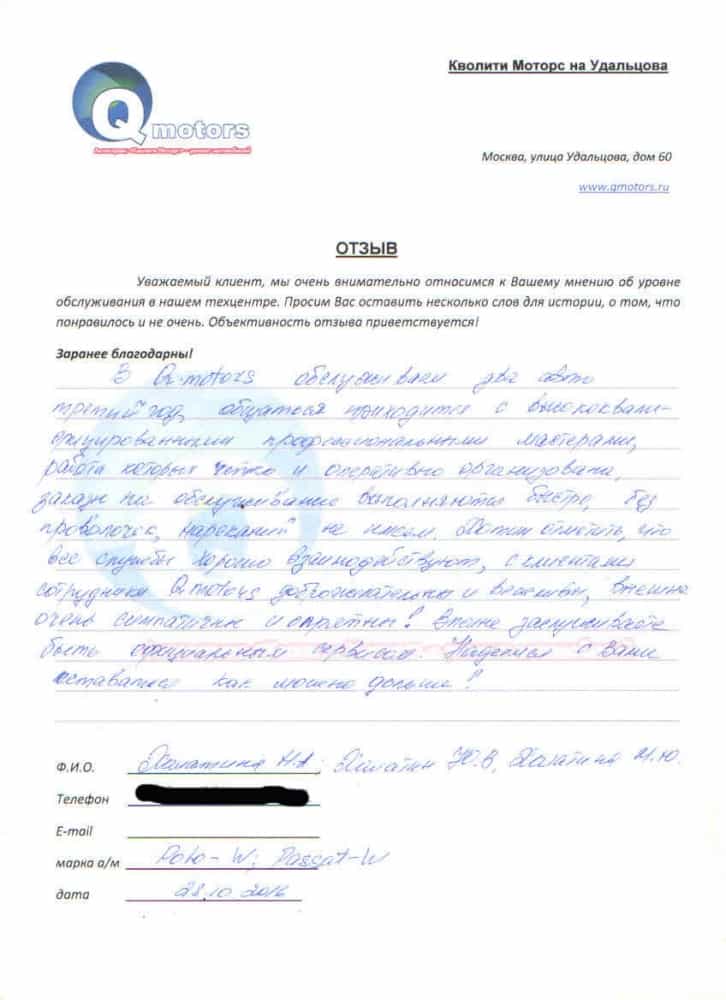 Кволити Моторс на Удальцова
Q motors
Москва, улица Удальцова, дом 60
www.qmotors.ru
ОТЗЫВ
Уважаемый клиент, мы очень внимательно относимся к Вашему мнению об уровне
обслуживания в нашем техцентре. Просим Вас оставить несколько слов для истории, о том, что
понравилось и не очень. Объективность отзыва приветствуется!
Заранее благодарны!
В Q-motors обслуживаем два авто
третий год, общаться приходится с высококвали-
фицированными профессиональными мастерами,
работа которых четко и оперативно организована,
заказы на обслуживание выполняются быстро, без
проволочек, нареканий не имеем. Хотим отметить, что
все службы хорошо взаимодействуют, с клиентами
сотрудники Q-motors доброжелательны и вежливы, внешне
очень симпатичны и опрятны! Вполне заслуживаете
быть официальным сервисом. Надеемся с Вами
оставаться как можно дольше!
Ф.И.О. Халатина Н.А.; Халатин Ю.В, Халатина М.Ю.
Телефон
E-mail
марка а/м Polo-W; Passat-W
дата 28.10 2016